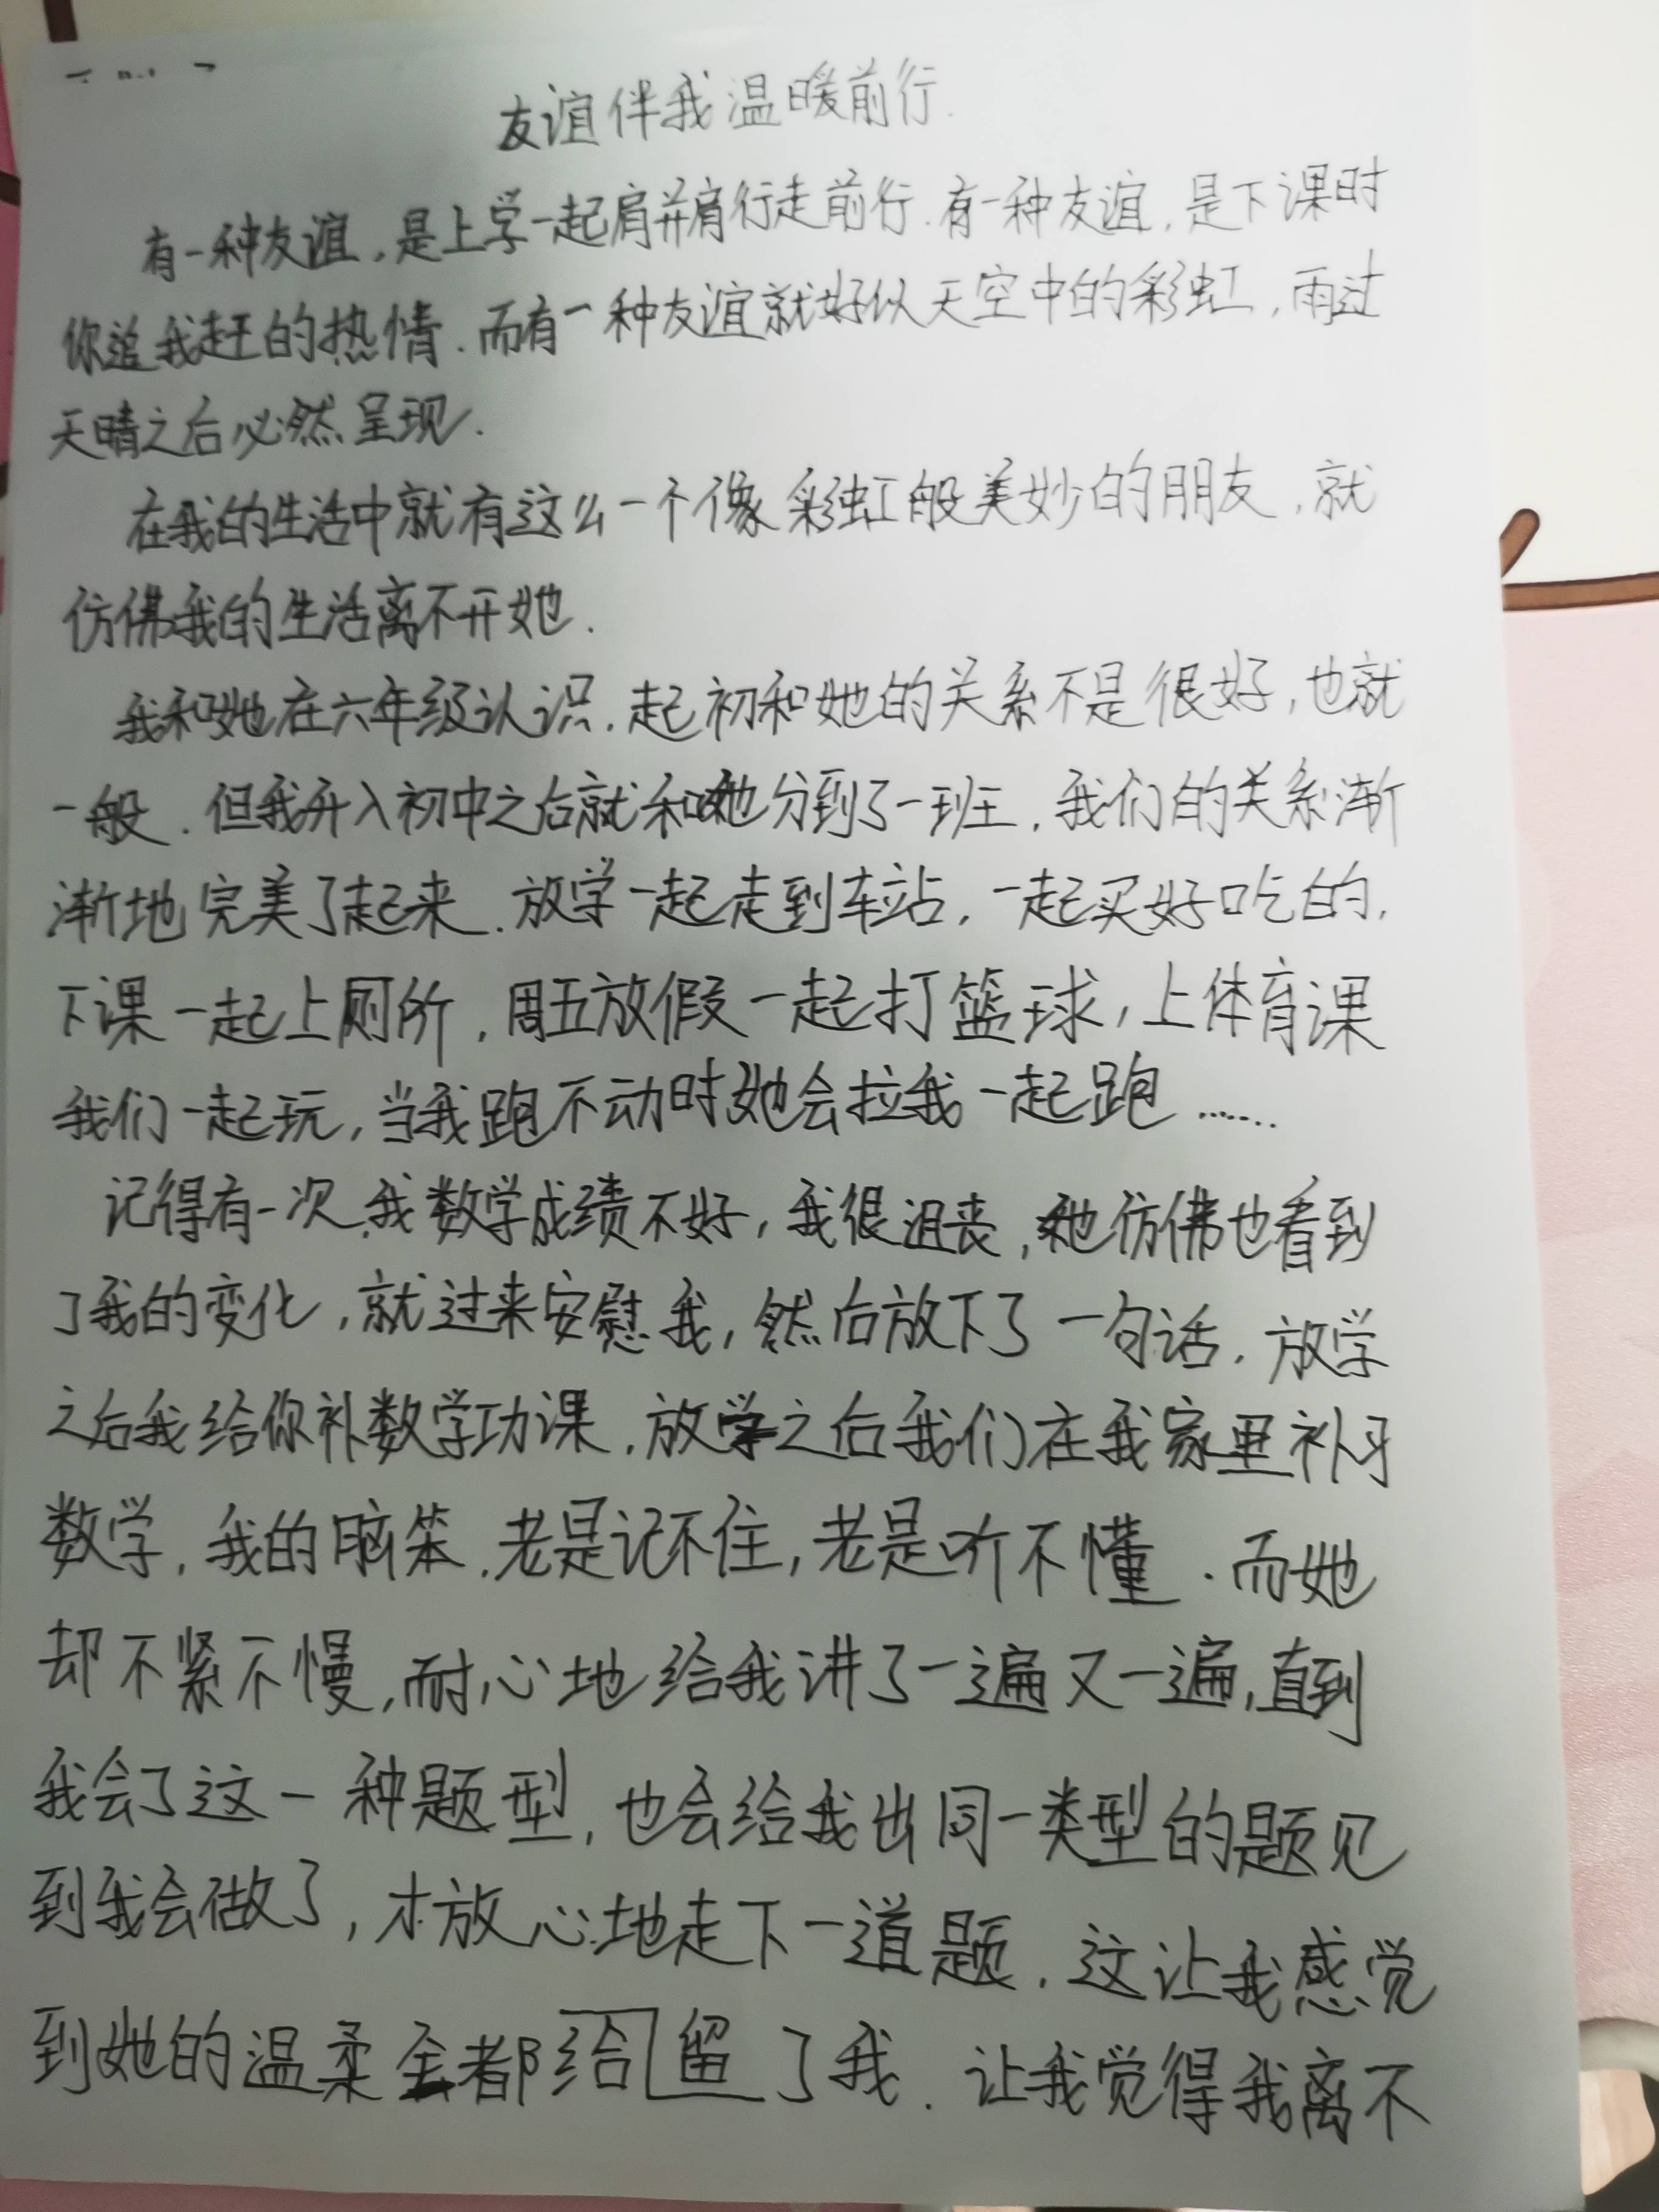 友谊伴我温暖前行.
有一种友谊,是上学一起肩并肩行走前行.有一种友谊,是下课时
你追我赶的热情.而有一种友谊就好似天空中的彩虹,雨过
天晴之后必然呈现.
在我的生活中就有这么一个像彩虹般美妙的朋友,就
仿佛我的生活离不开她.
我和她在六年级认识.起初和她的关系不是很好,也就
一般.但我升入初中之后就和她分到了一班,我们的关系渐
渐地完美了起来.放学一起走到车站,一起买好吃的,
下课一起上厕所,周五放假一起打篮球,上体育课
我们一起玩,当我跑不动时她会拉我一起跑......
记得有一次,我数学成绩不好,我很沮丧,她仿佛也看到
了我的变化,就过来安慰我,然后放下了一句话,放学
之后我给你补数学功课,放学之后我们在我家里补习
数学,我的脑笨,老是记不住,老是听不懂.而她
却不紧不慢,耐心地给我讲了一遍又一遍,直到
我会了这一种题型,也会给我出同一类型的题见
到我会做了,才放心地走下一道题.这让我感觉
到她的温柔全都给留了我.让我觉得我离不